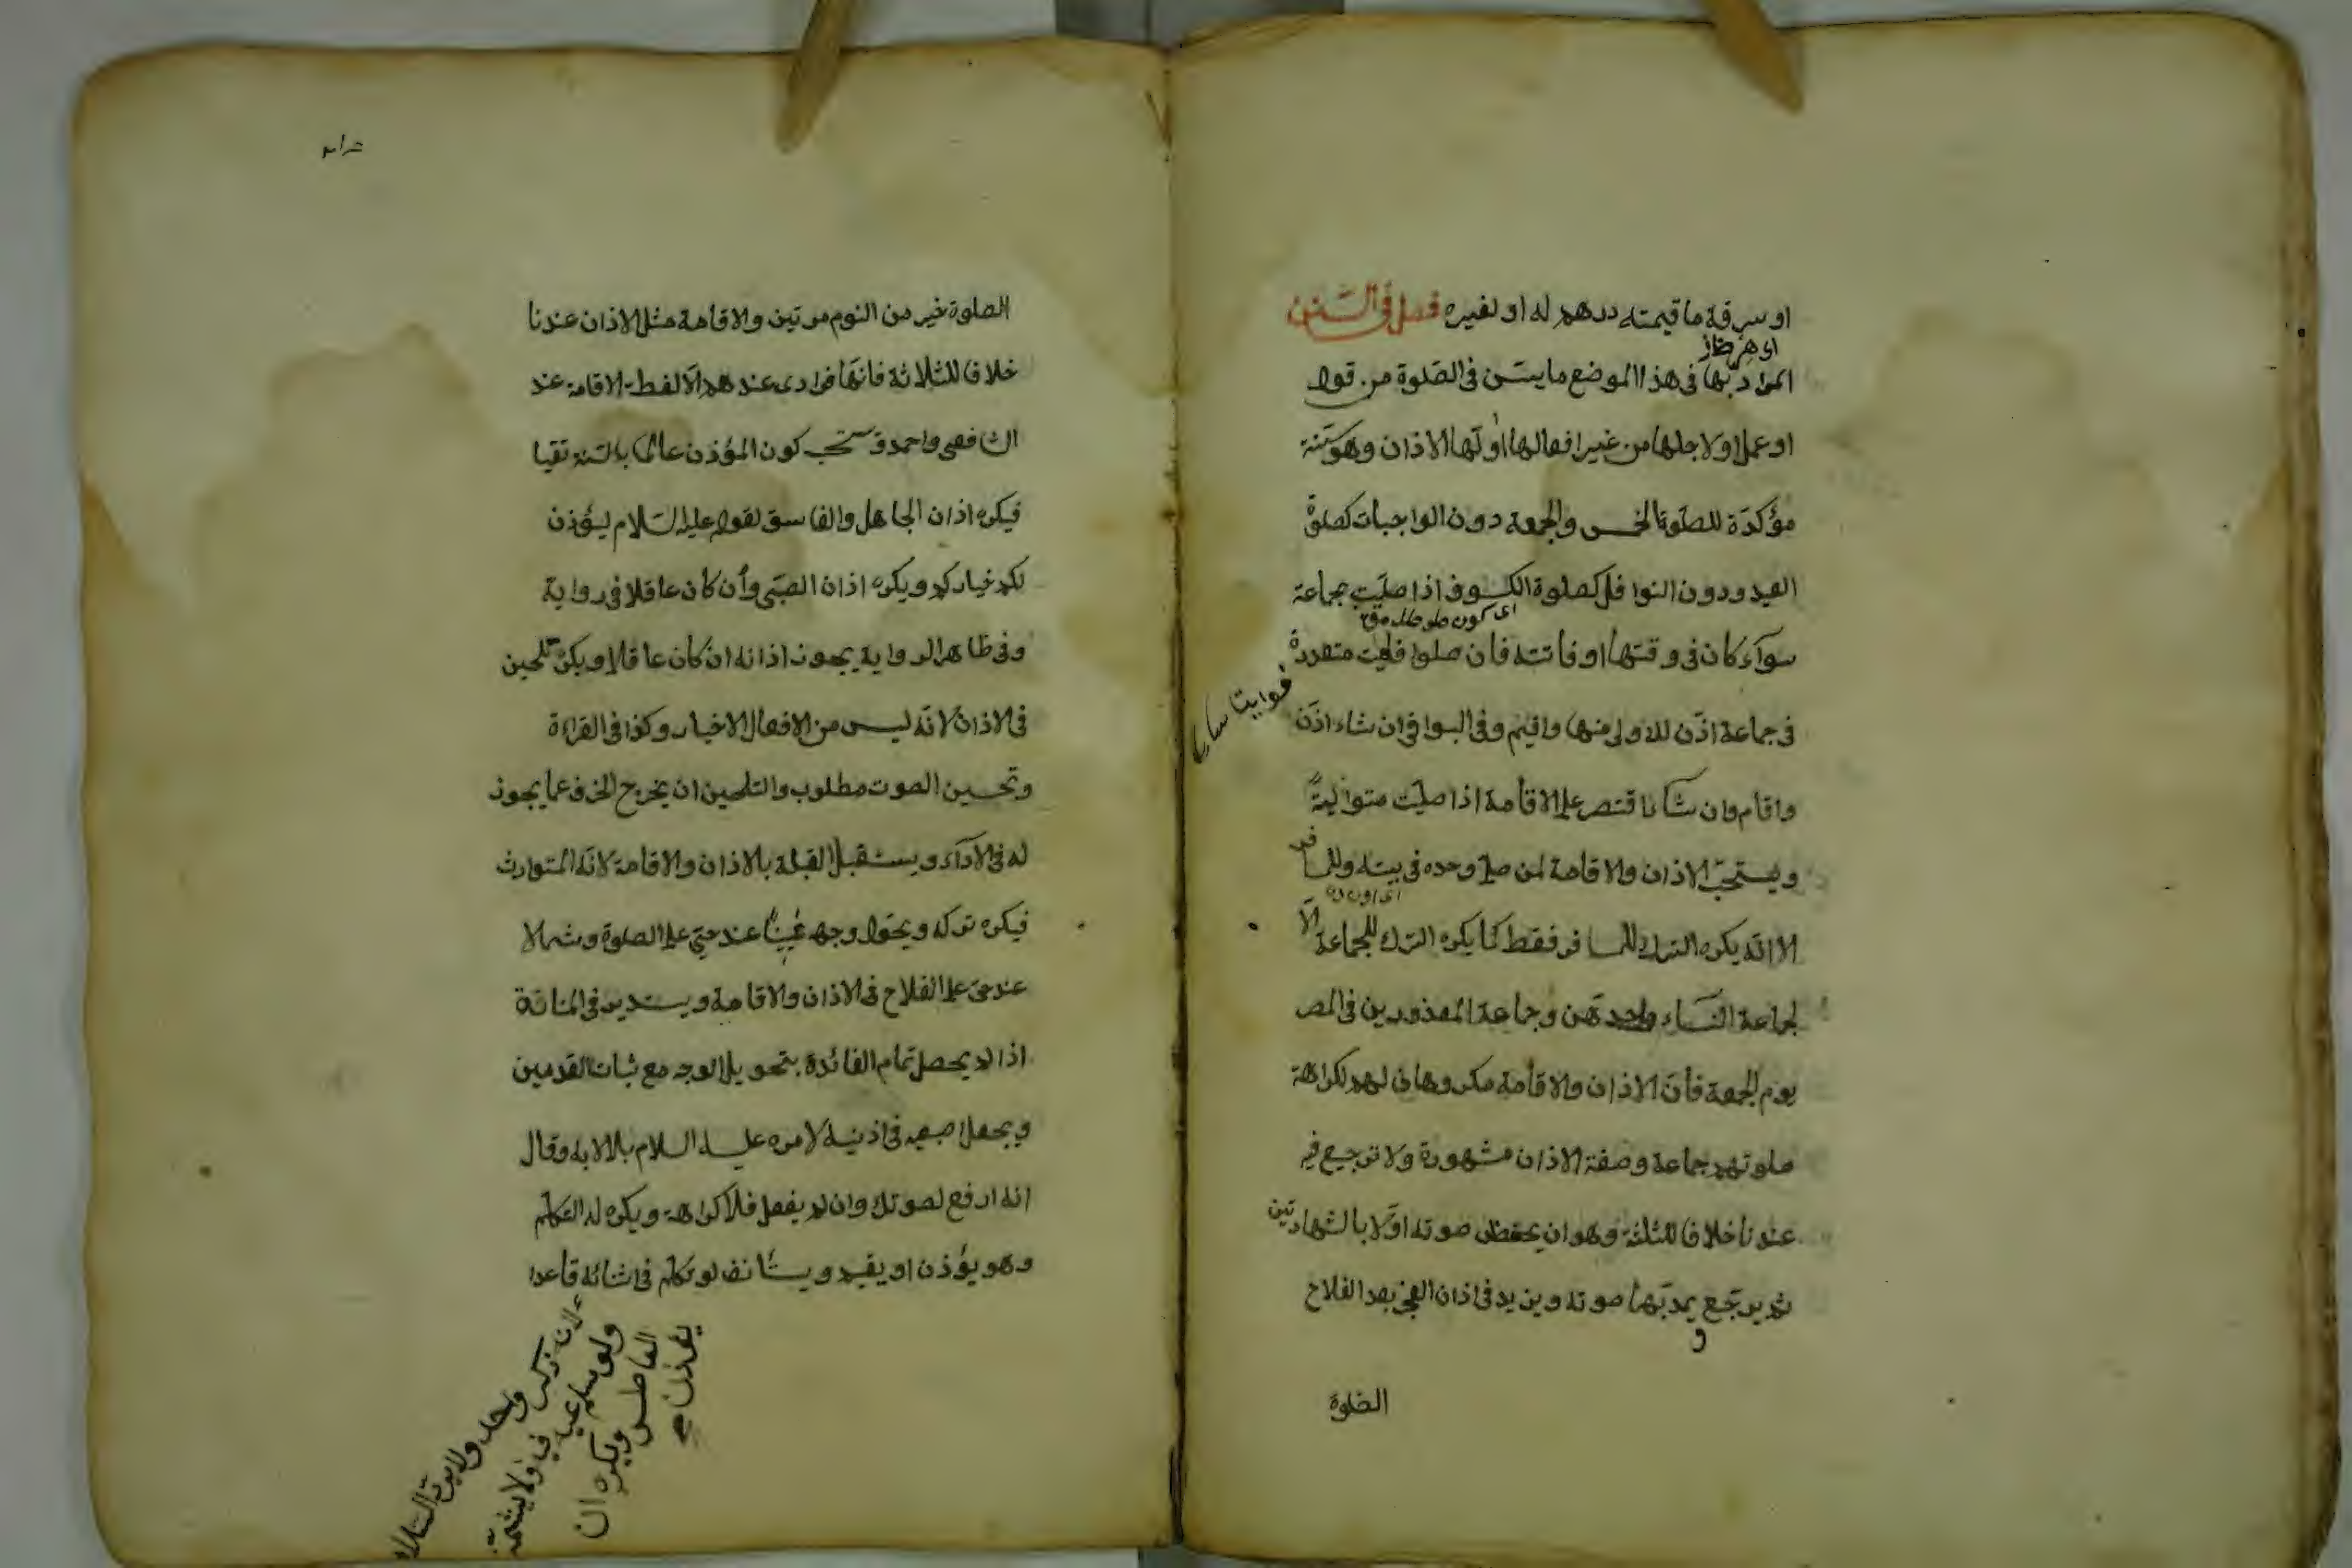 او سرقة ما قيمته درهم له او لغيره فصل فى السّنن
المراد بها فى هذا الموضع ما يسنّ فى الصّلوة من قول
او عمل او لاجلها من غير افعالها اولها الاذان وهو سنة
مؤكدة للصلوة الخمس والجمعة دون الواجبات كصلوة
العيد ودون النوافل كصلوة الكسوف اذا صليت بجماعة
سوآء كان فى وقتها او فائتة فان صلوا فوائت متعددة
فى جماعة اذّن للاولى منها واقيم وفى البواقى ان شاء اذّن
واقام وان شاء اقتصر على الاقامة اذا صليت متوالية
ويستحبّ الاذان والاقامة لمن صلى وحده فى بيته وللمسافر
الا انّه يكره الترك للمسافر فقط كما يكره الترك للجماعة الّا
لجماعة النسآء وحدهن وجماعة المعذورين فى المصر
يوم الجمعة فانّ الاذان والاقامة مكروهان لهم لكراهة
صلوتهم جماعة وصفة الاذان مشهورة ولا ترجيع فيه
عندنا خلافا للثلثة وهو ان يخفض صوته اوّلا بالشهادتين
ثم يرجّع يمدّ بهما صوته ويزيد فى اذان الفجر بعد الفلاح
الصّلوة
الصلوة خير من النوم مرتين والاقامة مثل الاذان عندنا
خلافا للثلاثة فانها فرادى عندهم الّا لفظة الاقامة عند
الشافعى واحمد ويستحب كون المؤذن عالما بالسّنة تقيا
فيكره اذان الجاهل والفاسق لقوله عليه السّلام ليؤذن
لكم خياركم ويكره اذان الصبّى وأن كان عاقلا فى رواية
وفى ظاهر الرواية يجوز اذانه ان كان عاقلا ويكره تلحين
فى الاذان لانّه ليس من الافعال الاخيار وكذا فى القراءة
وتحسين الصوت مطلوب والتلحين ان يخرج الحرف عما يجوز
له فى الادآء ويستقبل القبلة بالاذان والاقامة لانّه المتوارث
فيكره تركه ويحوّل وجهه يمينًا عند حىّ على الصلوة وشمالا
عند حىّ على الفلاح فى الاذان والاقامة ويستدير فى المنارة
اذا لم يحصل تمام الفائدة بتحويل الوجه مع ثبات القدمين
ويجعل اصبعيه فى اذنيه لامره عليه السلام بلالا به وقال
انه ارفع لصوتك وان لم يفعل فلا كراهة ويكره له التكلم
وهو يؤذن او يقيم ويستأنف لو تكلم فى اثنائه قاعدا
لانه ذكر واحد ولا يردّ السّلام
ولو سلم عليه
ولا يشمّت
العاطس ويكره ان
يؤذن